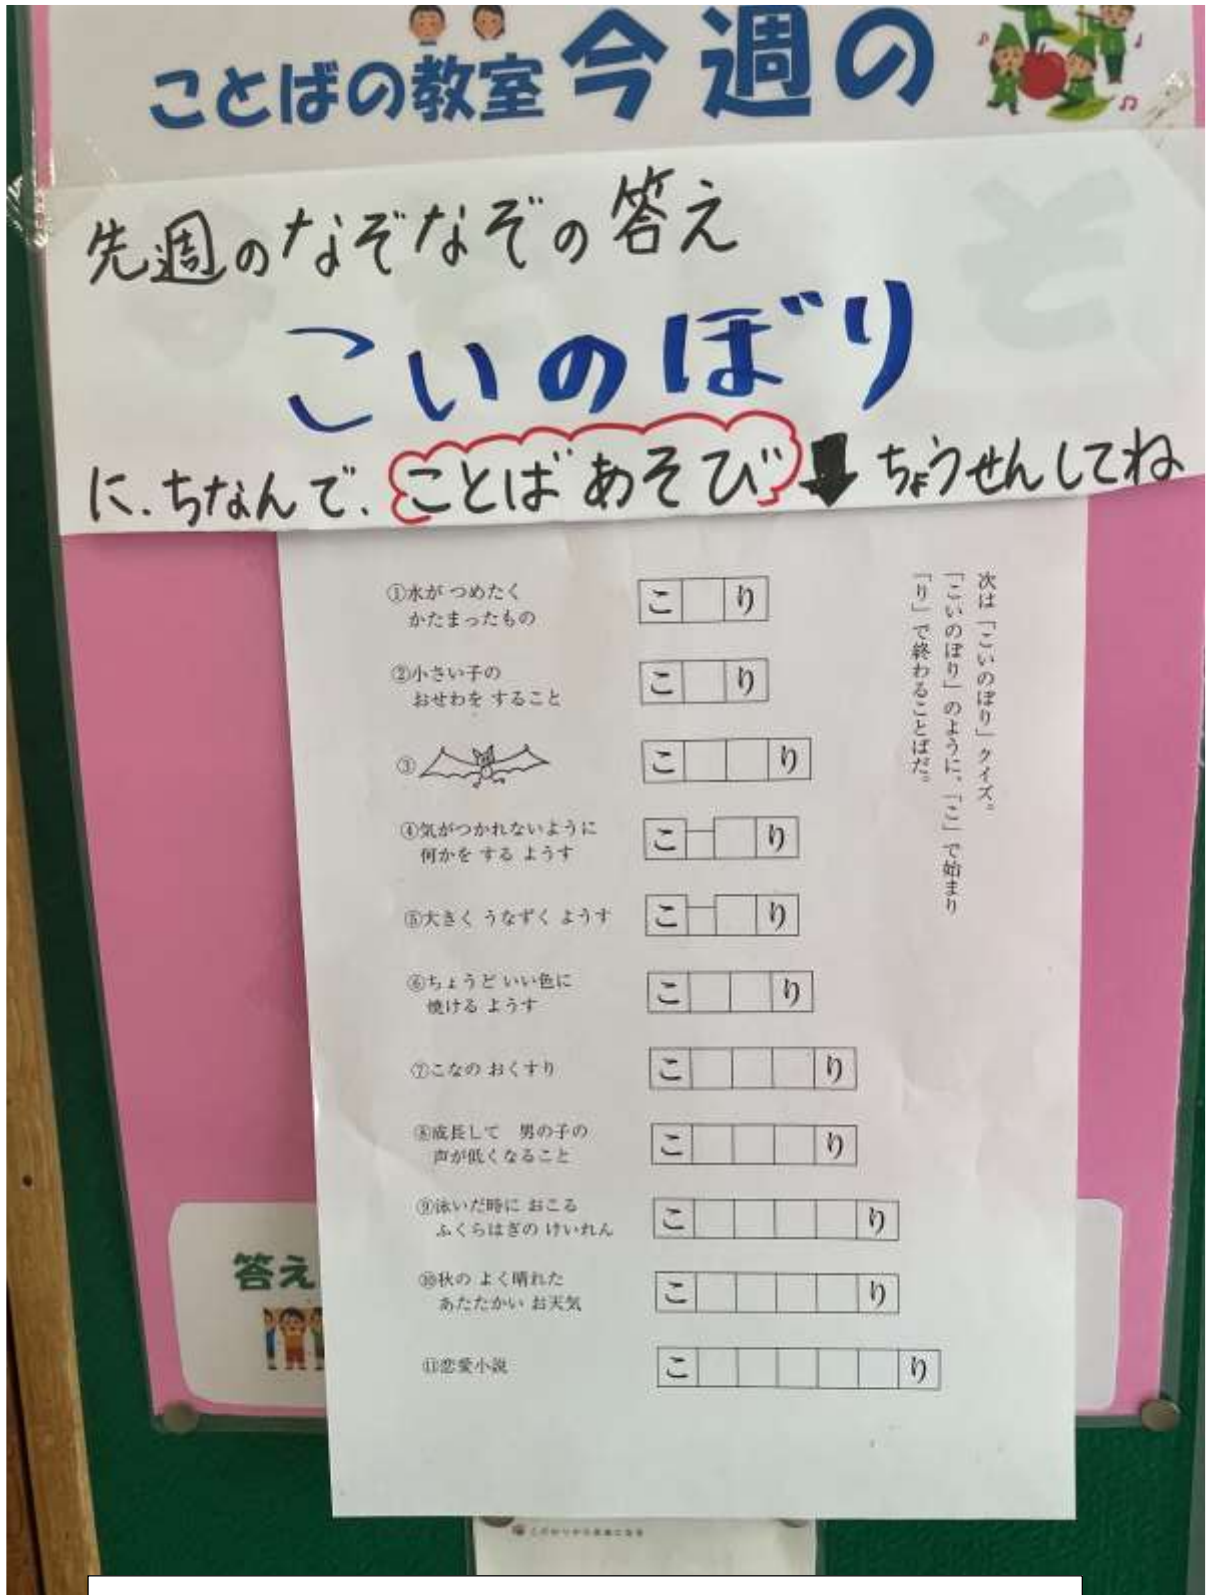 ことばの教室 今週の
先週のなぞなぞの答え
こいのぼり
に、ちなんで、ことばあそび⬇ちょうせんしてね
次は「こいのぼり」クイズ。
「こいのぼり」のように、「こ」で始まり
「り」で終わることばだ。
①水が つめたく
かたまったもの
こ り
②小さい子の
おせわを すること
こ り
③
こ り
④気がつかれないように
何かを する ようす
こ り
⑤大きく うなずく ようす
こ り
⑥ちょうど いい色に
焼ける ようす
こ り
⑦こなの おくすり
こ り
⑧成長して 男の子の
声が低くなること
こ り
⑨泳いだ時に おこる
ふくらはぎの けいれん
こ り
⑩秋の よく晴れた
あたたかい お天気
こ り
⑪恋愛小説
こ り
答え